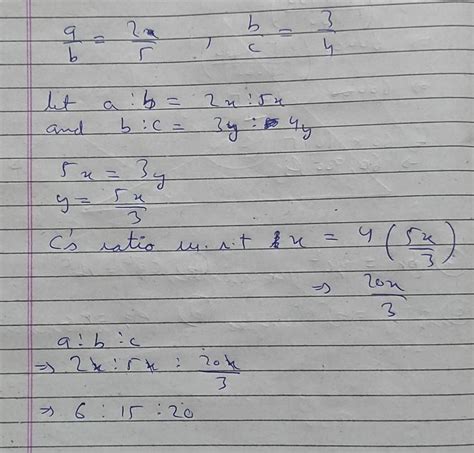 a/b = 2x/5 , b/c = 3/4
let a : b = 2x : 5x
and b : c = 3y : 4y
5x = 3y
y = 5x/3
C's ratio w.r.t x = 4 (5x/3)
⇒ 20x/3
a : b : c
⇒ 2x : 5x : 20x/3
⇒ 6 : 15 : 20